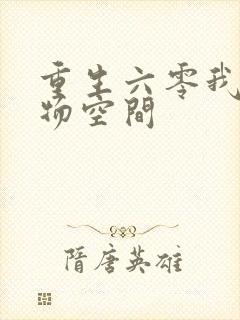 重生六零我
物空間
隋唐英雄